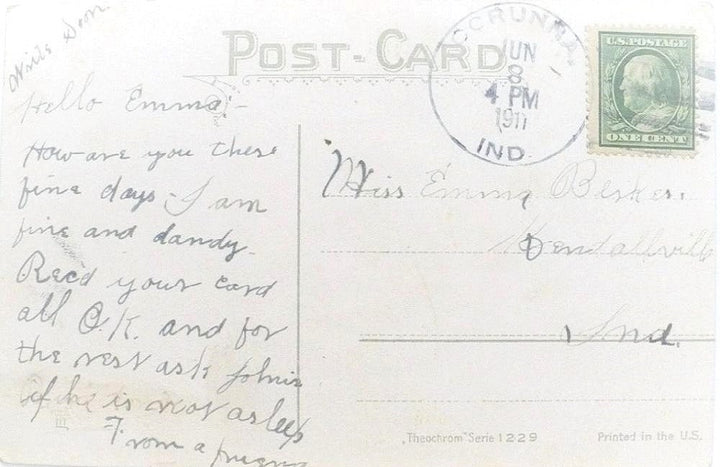 Write Soon.
POST-CARD
CORUNNA
JUN
8
4 PM
1911
IND.
U.S. POSTAGE
ONE CENT
Hello Emma:-
How are you these
fine days - I am
fine and dandy.
Recd your card
all O.K. and for
the rest ask Johnie
if he is not asleep
From a friend
Miss Emma
Kendallville
Ind.
„Theochrom" Serie 1229
Printed in the U.S.